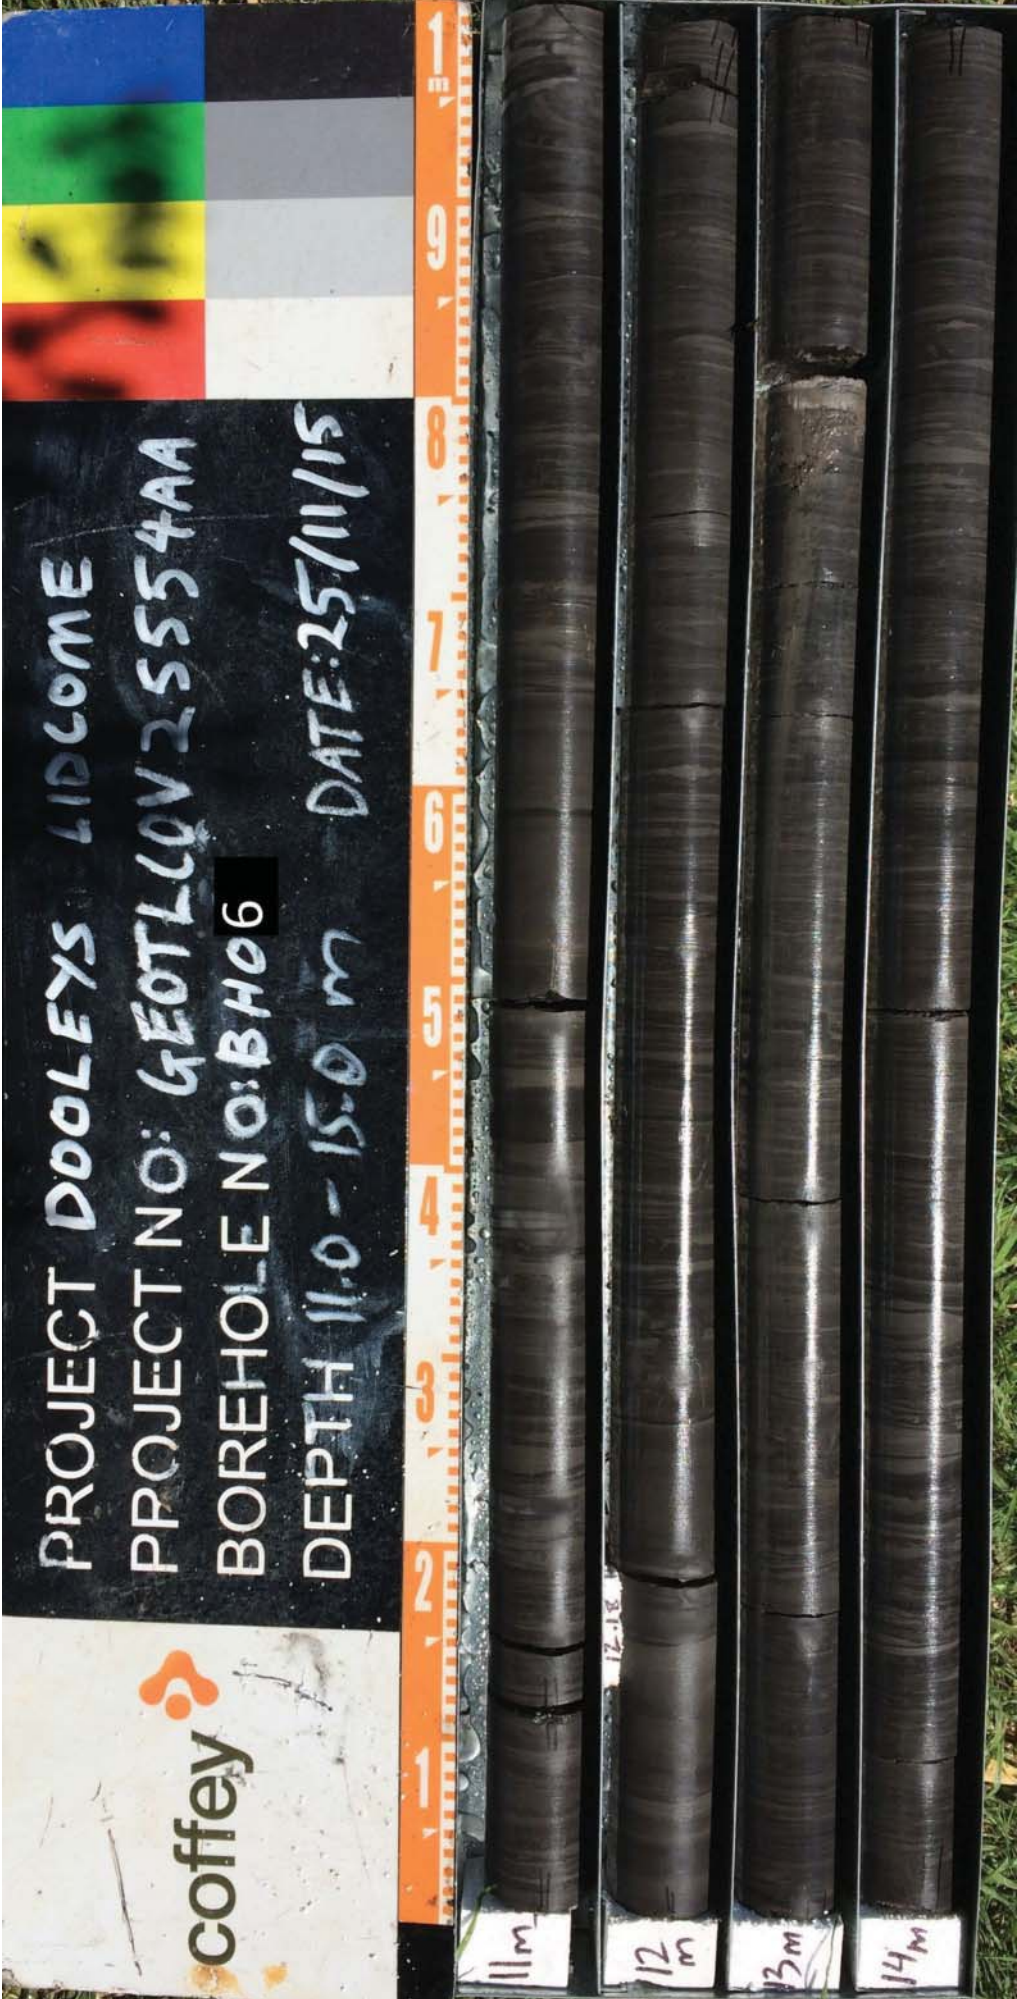 PROJECT DOOLEYS LIDCOME
PROJECT NO: GEOTLCOV25554AA
BOREHOLE NO: BH06
DEPTH 11.0 - 15.0 m DATE: 25/11/15
coffey
1 2 3 4 5 6 7 8 9 1m
11m
12m
12.18
13m
14m